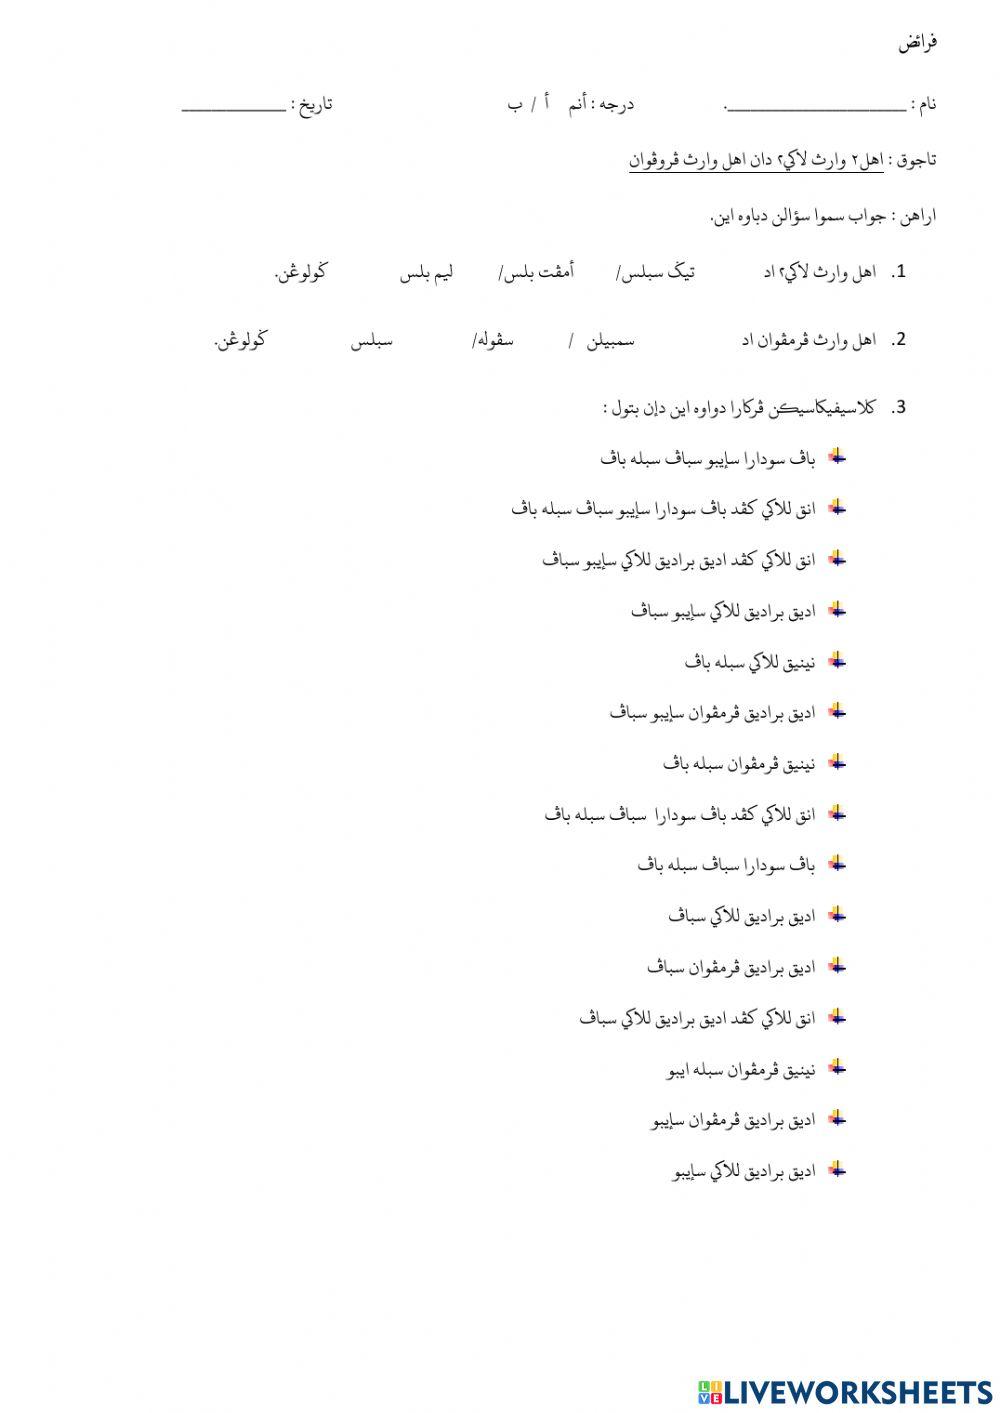 فرائض
نام : ____________________. درجه : أنم أ / ب تاريخ : ____________
تاجوق : اهل٢ وارث لاكي٢ دان اهل وارث ڤروڤوان
اراهن : جواب سموا سؤالن دباوه اين.
1. اهل وارث لاكي٢ اد تيݢ سبلس/ أمڤت بلس/ ليم بلس ݢولوڠن.
2. اهل وارث ڤرمڤوان اد سمبيلن / سڤوله/ سبلس ݢولوڠن.
3. كلاسيفيكاسيكن ڤركارا دواوه اين دڠن بتول :
باڤ سودارا سإيبو سباڤ سبله باڤ
انق للاكي كڤد باڤ سودارا سإيبو سباڤ سبله باڤ
انق للاكي كڤد اديق براديق للاكي سإيبو سباڤ
اديق براديق للاكي سإيبو سباڤ
نينيق للاكي سبله باڤ
اديق براديق ڤرمڤوان سإيبو سباڤ
نينيق ڤرمڤوان سبله باڤ
انق للاكي كڤد باڤ سودارا سباڤ سبله باڤ
باڤ سودارا سباڤ سبله باڤ
اديق براديق للاكي سباڤ
اديق براديق ڤرمڤوان سباڤ
انق للاكي كڤد اديق براديق للاكي سباڤ
نينيق ڤرمڤوان سبله ايبو
اديق براديق ڤرمڤوان سإيبو
اديق براديق للاكي سإيبو
LIVE LIVEWORKSHEETS